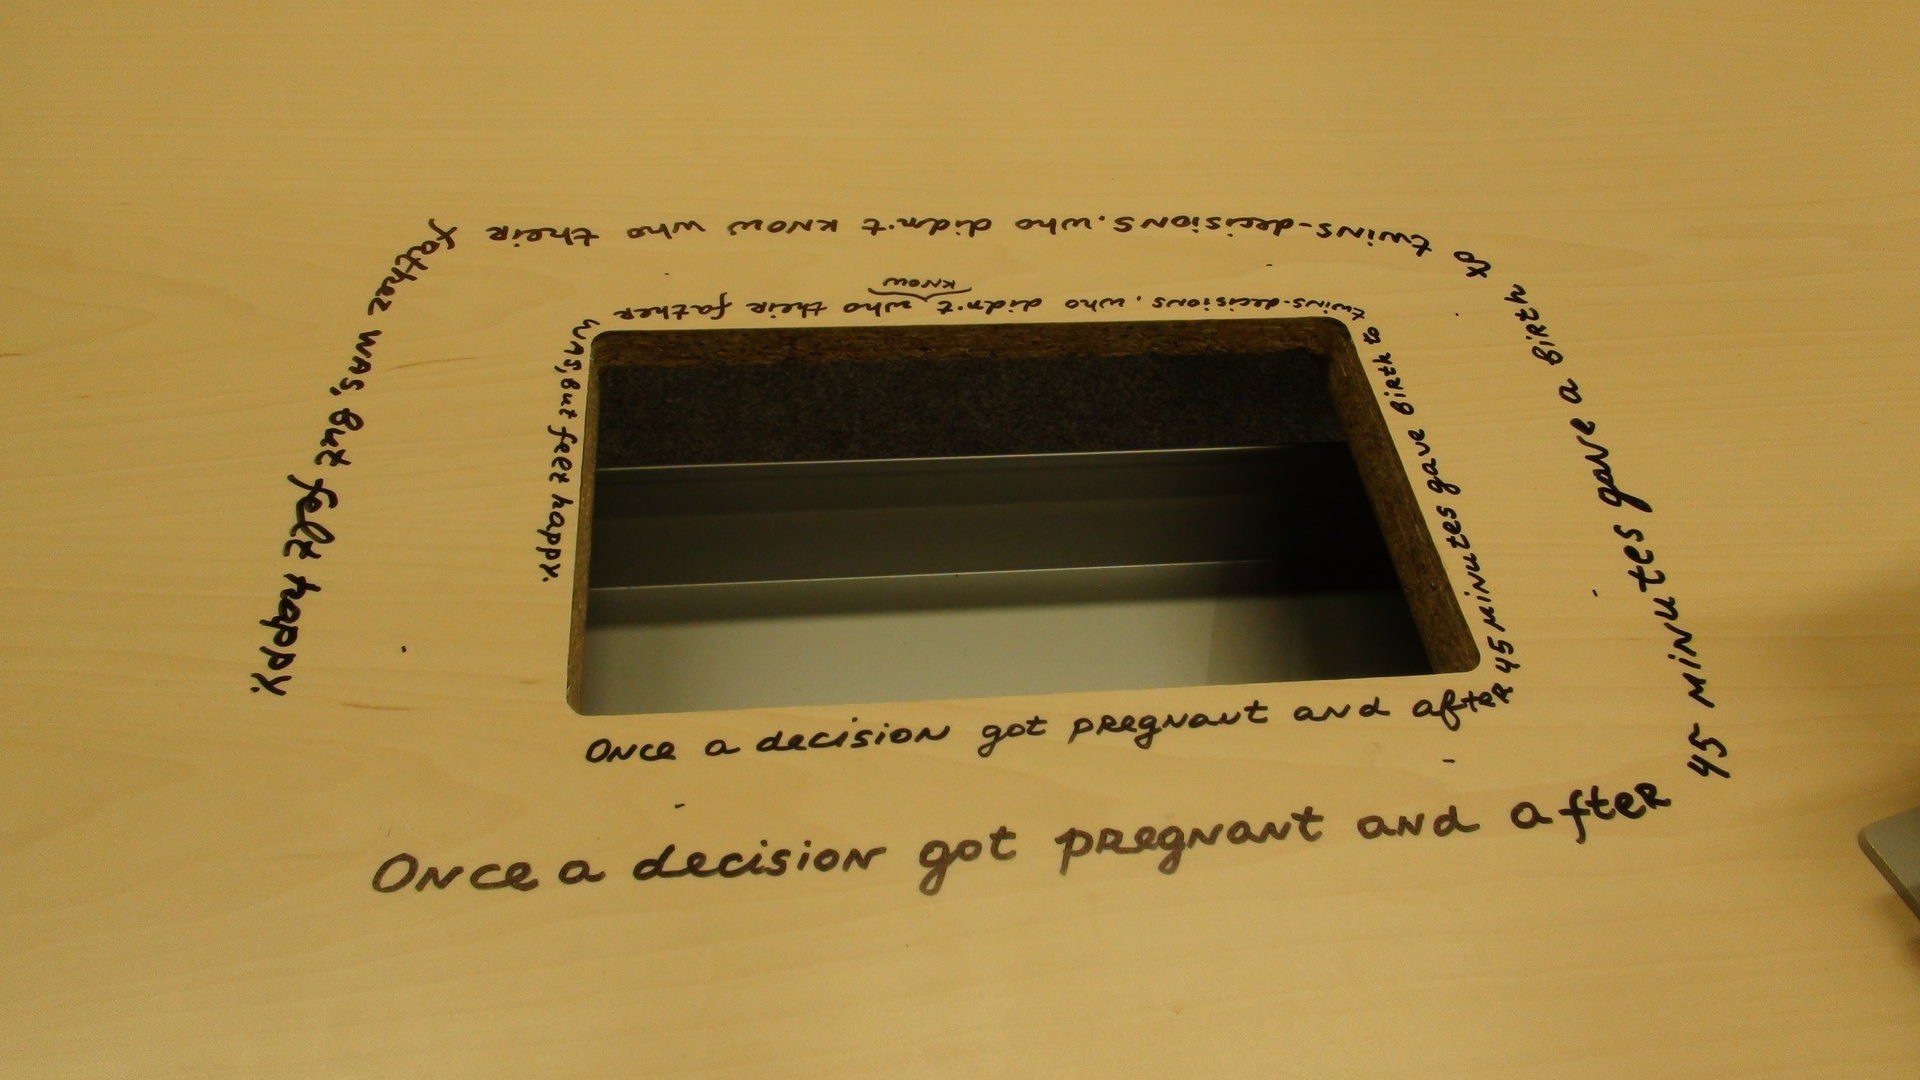 Once a decision got pregnant and after
45 minutes gave a birth to
twins-decisions, who didn't know who their
father was, but felt happy.
Once a decision got pregnant and after
45 minutes gave birth to
twins-decisions, who didn't who their father
know
was, but felt happy.